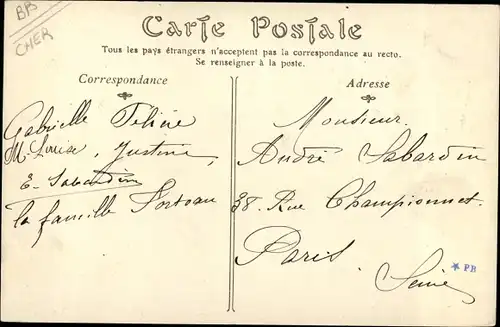 BB
CHER
Carte Postale
Tous les pays étrangers n'acceptent pas la correspondance au recto.
Se renseigner à la poste.
Correspondance
Gabrielle Félicie
M. Louise, Justine,
E. Sabardin
la famille
Adresse
Monsieur
André Sabardin
38 Rue Championnet
Paris
Seine
* PB